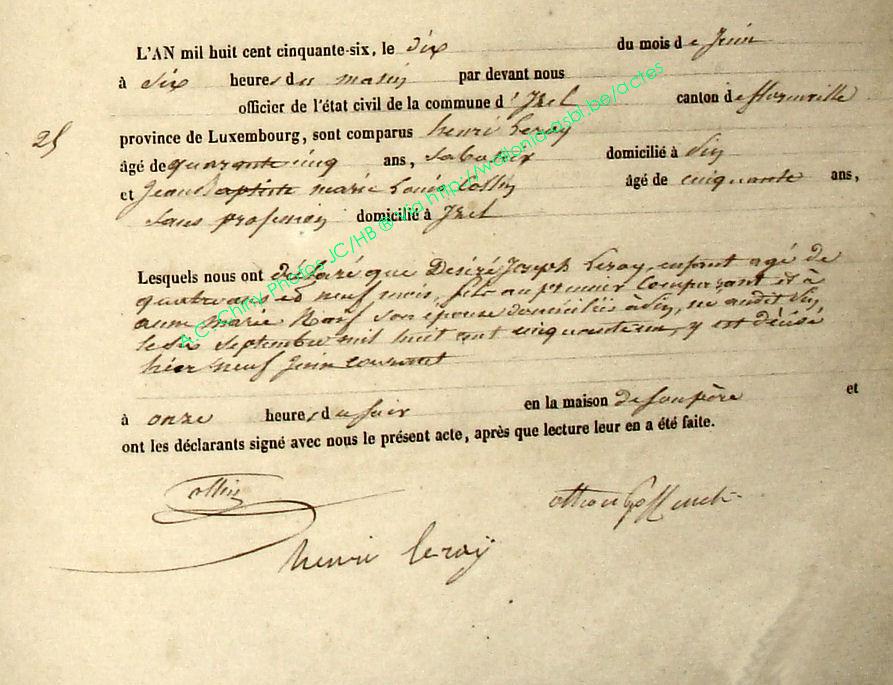 L'AN mil huit cent cinquante-six, le dix du mois de Juin
à dix heures du matin par devant nous
officier de l'état civil de la commune d'Izel canton de florenville
25 province de Luxembourg, sont comparus henri Leroy
âgé de quarante cinq ans, domicilié à
et Jean Baptiste marie Louis Collin âgé de cinquante ans,
sans profession domicilié à Izel
Lesquels nous ont déclaré que Désiré Joseph Leroy, enfant agé de
quatre ans et neuf mois, fils au premier Comparant et à
anne marie son épouse domiciliés à né audit
le septembre mil huit cent cinquante un, y est décédé
hier neuf Juin courant
à onze heures du soir en la maison de son père et
ont les déclarants signé avec nous le présent acte, après que lecture leur en a été faite.
Collin
henri leroÿ
A.C. Chiny Photos JC/HB ® Via http://walloniaasbl.be/actes